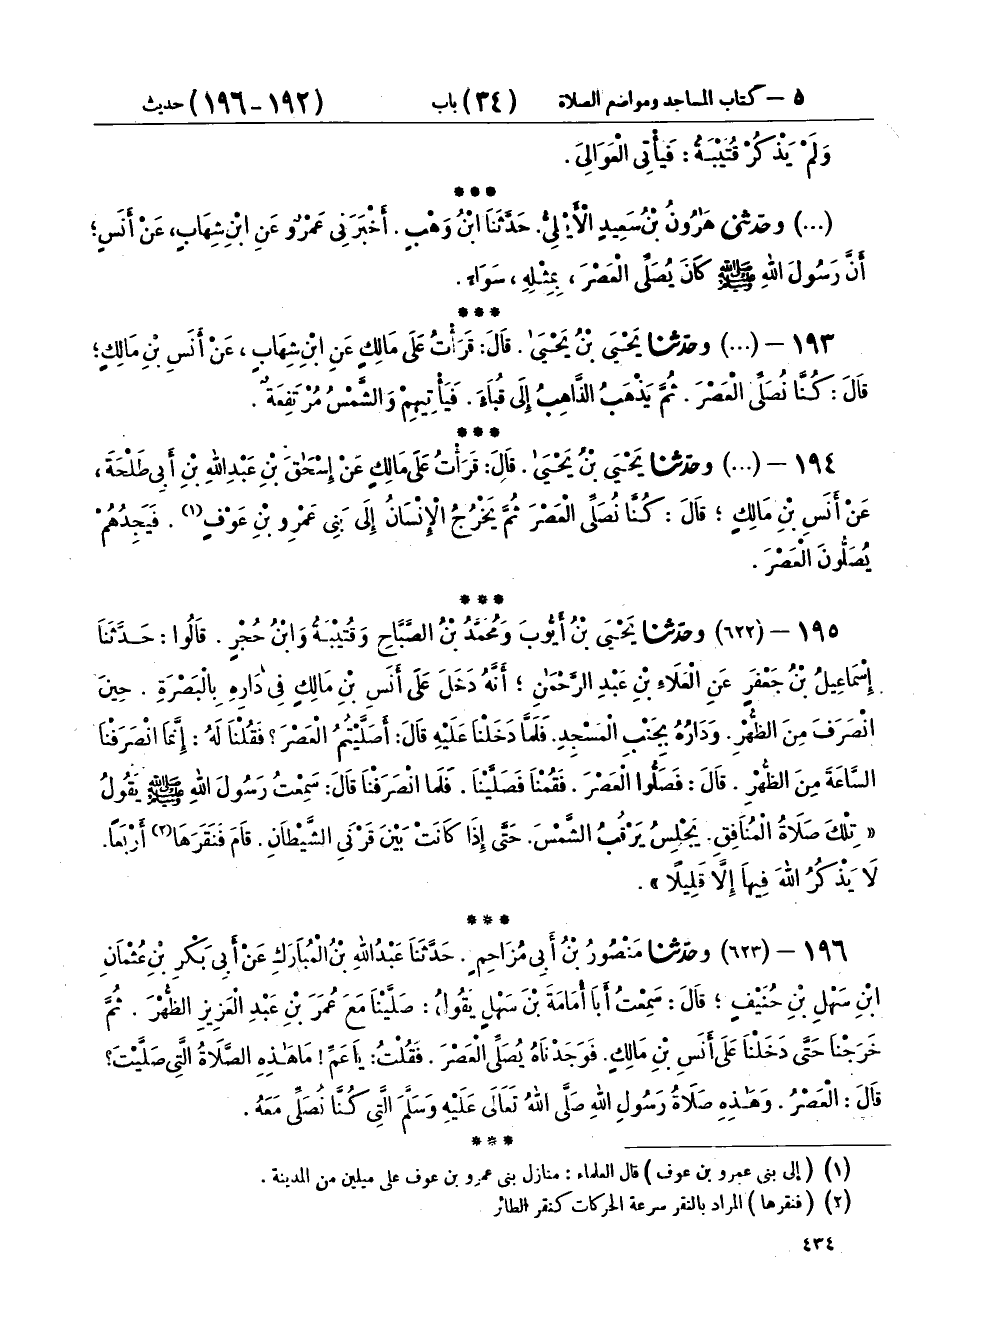 ٥ – كتاب المساجد ومواضع الصلاة (٣٤) باب (١٩٢ - ١٩٦) حديث
وَلَمْ يَذْكُرْ قُتَيْبَةُ : فَيَأْتِي الْعَوَالِيَ .
***
(...) وحَدَّثَنِي هَارُونُ بْنُ سَعِيدٍ الْأَيْلِيُّ. حَدَّثَنَا ابْنُ وَهْبٍ . أَخْبَرَنِي عَمْرٌو عَنِ ابْنِ شِهَابٍ، عَنْ أَنَسٍ؛
أَنَّ رَسُولَ اللهِ ﷺ كَانَ يُصَلِّي الْعَصْرَ ، بِمِثْلِهِ ، سَوَاءً .
***
١٩٣ – (...) وحَدَّثَنَا يَحْيَىٰ بْنُ يَحْيَىٰ . قَالَ: قَرَأْتُ عَلَى مَالِكٍ عَنِ ابْنِ شِهَابٍ ، عَنْ أَنَسِ بْنِ مَالِكٍ؛
قَالَ : كُنَّا نُصَلِّي الْعَصْرَ . ثُمَّ يَذْهَبُ الذَّاهِبُ إِلَى قُبَاءَ . فَيَأْتِيهِمْ وَالشَّمْسُ مُرْتَفِعَةٌ .
***
١٩٤ – (...) وحَدَّثَنَا يَحْيَىٰ بْنُ يَحْيَىٰ . قَالَ: قَرَأْتُ عَلَى مَالِكٍ عَنْ إِسْحَٰقَ بْنِ عَبْدِ اللهِ بْنِ أَبِي طَلْحَةَ ،
عَنْ أَنَسِ بْنِ مَالِكٍ ؛ قَالَ : كُنَّا نُصَلِّي الْعَصْرَ ثُمَّ يَخْرُجُ الْإِنْسَانُ إِلَى بَنِي عَمْرِو بْنِ عَوْفٍ (١) . فَيَجِدُهُمْ
يُصَلُّونَ الْعَصْرَ .
***
١٩٥ – (٦٢٢) وحَدَّثَنَا يَحْيَى بْنُ أَيُّوبَ وَمُحَمَّدُ بْنُ الصَّبَّاحِ وَقُتَيْبَةُ وَابْنُ حُجْرٍ . قَالُوا : حَدَّثَنَا
إِسْمَاعِيلُ بْنُ جَعْفَرٍ عَنِ الْعَلَاءِ بْنِ عَبْدِ الرَّحْمَٰنِ ؛ أَنَّهُ دَخَلَ عَلَى أَنَسِ بْنِ مَالِكٍ فِي دَارِهِ بِالْبَصْرَةِ . حِينَ
انْصَرَفَ مِنَ الظُّهْرِ. وَدَارُهُ بِجَنْبِ الْمَسْجِدِ. فَلَمَّا دَخَلْنَا عَلَيْهِ قَالَ: أَصَلَّيْتُمُ الْعَصْرَ؟ فَقُلْنَا لَهُ : إِنَّمَا انْصَرَفْنَا
السَّاعَةَ مِنَ الظُّهْرِ . قَالَ : فَصَلُّوا الْعَصْرَ . فَقُمْنَا فَصَلَّيْنَا . فَلَمَّا انْصَرَفْنَا قَالَ: سَمِعْتُ رَسُولَ اللهِ ﷺ يَقُولُ
« تِلْكَ صَلَاةُ الْمُنَافِقِ. يَجْلِسُ يَرْقُبُ الشَّمْسَ. حَتَّى إِذَا كَانَتْ بَيْنَ قَرْنَيِ الشَّيْطَانِ. قَامَ فَنَقَرَهَا (٢) أَرْبَعًا.
لَا يَذْكُرُ اللهَ فِيهَا إِلَّا قَلِيلًا » .
***
١٩٦ – (٦٢٣) وحَدَّثَنَا مَنْصُورُ بْنُ أَبِي مُزَاحِمٍ . حَدَّثَنَا عَبْدُ اللهِ بْنُ الْمُبَارَكِ عَنْ أَبِي بَكْرِ بْنِ عُثْمَانَ
ابْنِ سَهْلِ بْنِ حُنَيْفٍ ؛ قَالَ : سَمِعْتُ أَبَا أُمَامَةَ بْنَ سَهْلٍ يَقُولُ : صَلَّيْنَا مَعَ عُمَرَ بْنِ عَبْدِ الْعَزِيزِ الظُّهْرَ . ثُمَّ
خَرَجْنَا حَتَّى دَخَلْنَا عَلَى أَنَسِ بْنِ مَالِكٍ. فَوَجَدْنَاهُ يُصَلِّي الْعَصْرَ . فَقُلْتُ: يَا عَمِّ! مَا هَٰذِهِ الصَّلَاةُ الَّتِي صَلَّيْتَ؟
قَالَ : الْعَصْرُ . وَهَٰذِهِ صَلَاةُ رَسُولِ اللهِ صَلَّى اللهُ تَعَالَى عَلَيْهِ وَسَلَّمَ الَّتِي كُنَّا نُصَلِّي مَعَهُ .
***
(١) ( إلى بنى عمرو بن عوف ) قال العلماء : منازل بنى عمرو بن عوف على ميلين من المدينة .
(٢) ( فنقرها ) المراد بالنقر سرعة الحركات كنقر الطائر
٤٣٤